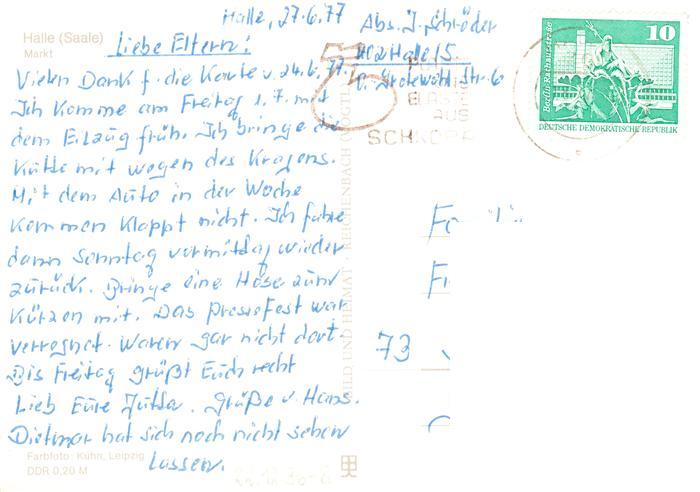 Halle (Saale)
Markt
Halle, 27.6.77
Liebe Eltern!
Vielen Dank f. die Karte v. 24.6.77.
Ich komme am Freitag 1.7. mit
dem Eilzug früh. Ich bringe die
Kutte mit wegen des Kragens.
Mit dem Auto in der Woche
kommen klappt nicht. Ich fahre
dann Sonntag vormittag wieder
zurück. Bringe eine Hose zum
Kürzen mit. Das Pressefest war
verregnet. Waren gar nicht dort.
Bis Freitag grüßt Euch recht
lieb Eure Jutta. Grüße v. Hans.
Dietmar hat sich noch nicht sehen
lassen.
Farbfoto: Kühn, Leipzig
DDR 0,20 M
BILD UND HEIMAT · REICHENBACH (VOGTL)
Abs. J. Schröder
402 Halle/S.
O. Grotewohl Str. 6
AUS
SCHKOPA
10
Berlin-Rathausstraße
DEUTSCHE DEMOKRATISCHE REPUBLIK
F
F
73